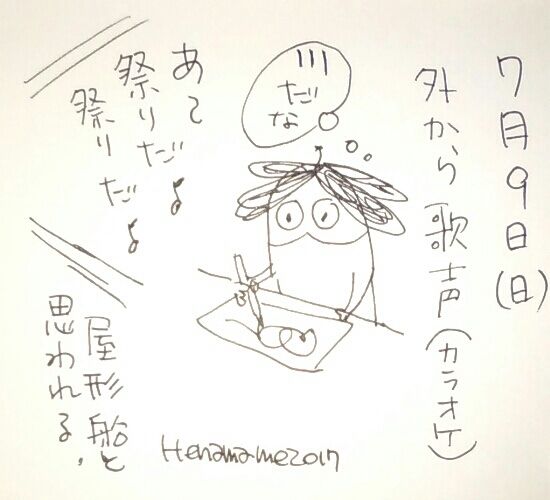 7月9日(日)
外から歌声(カラオケ)
川
だな
あ〜
祭りだ♪
祭りだ♪
屋形船と
思われる。
Henamame2017